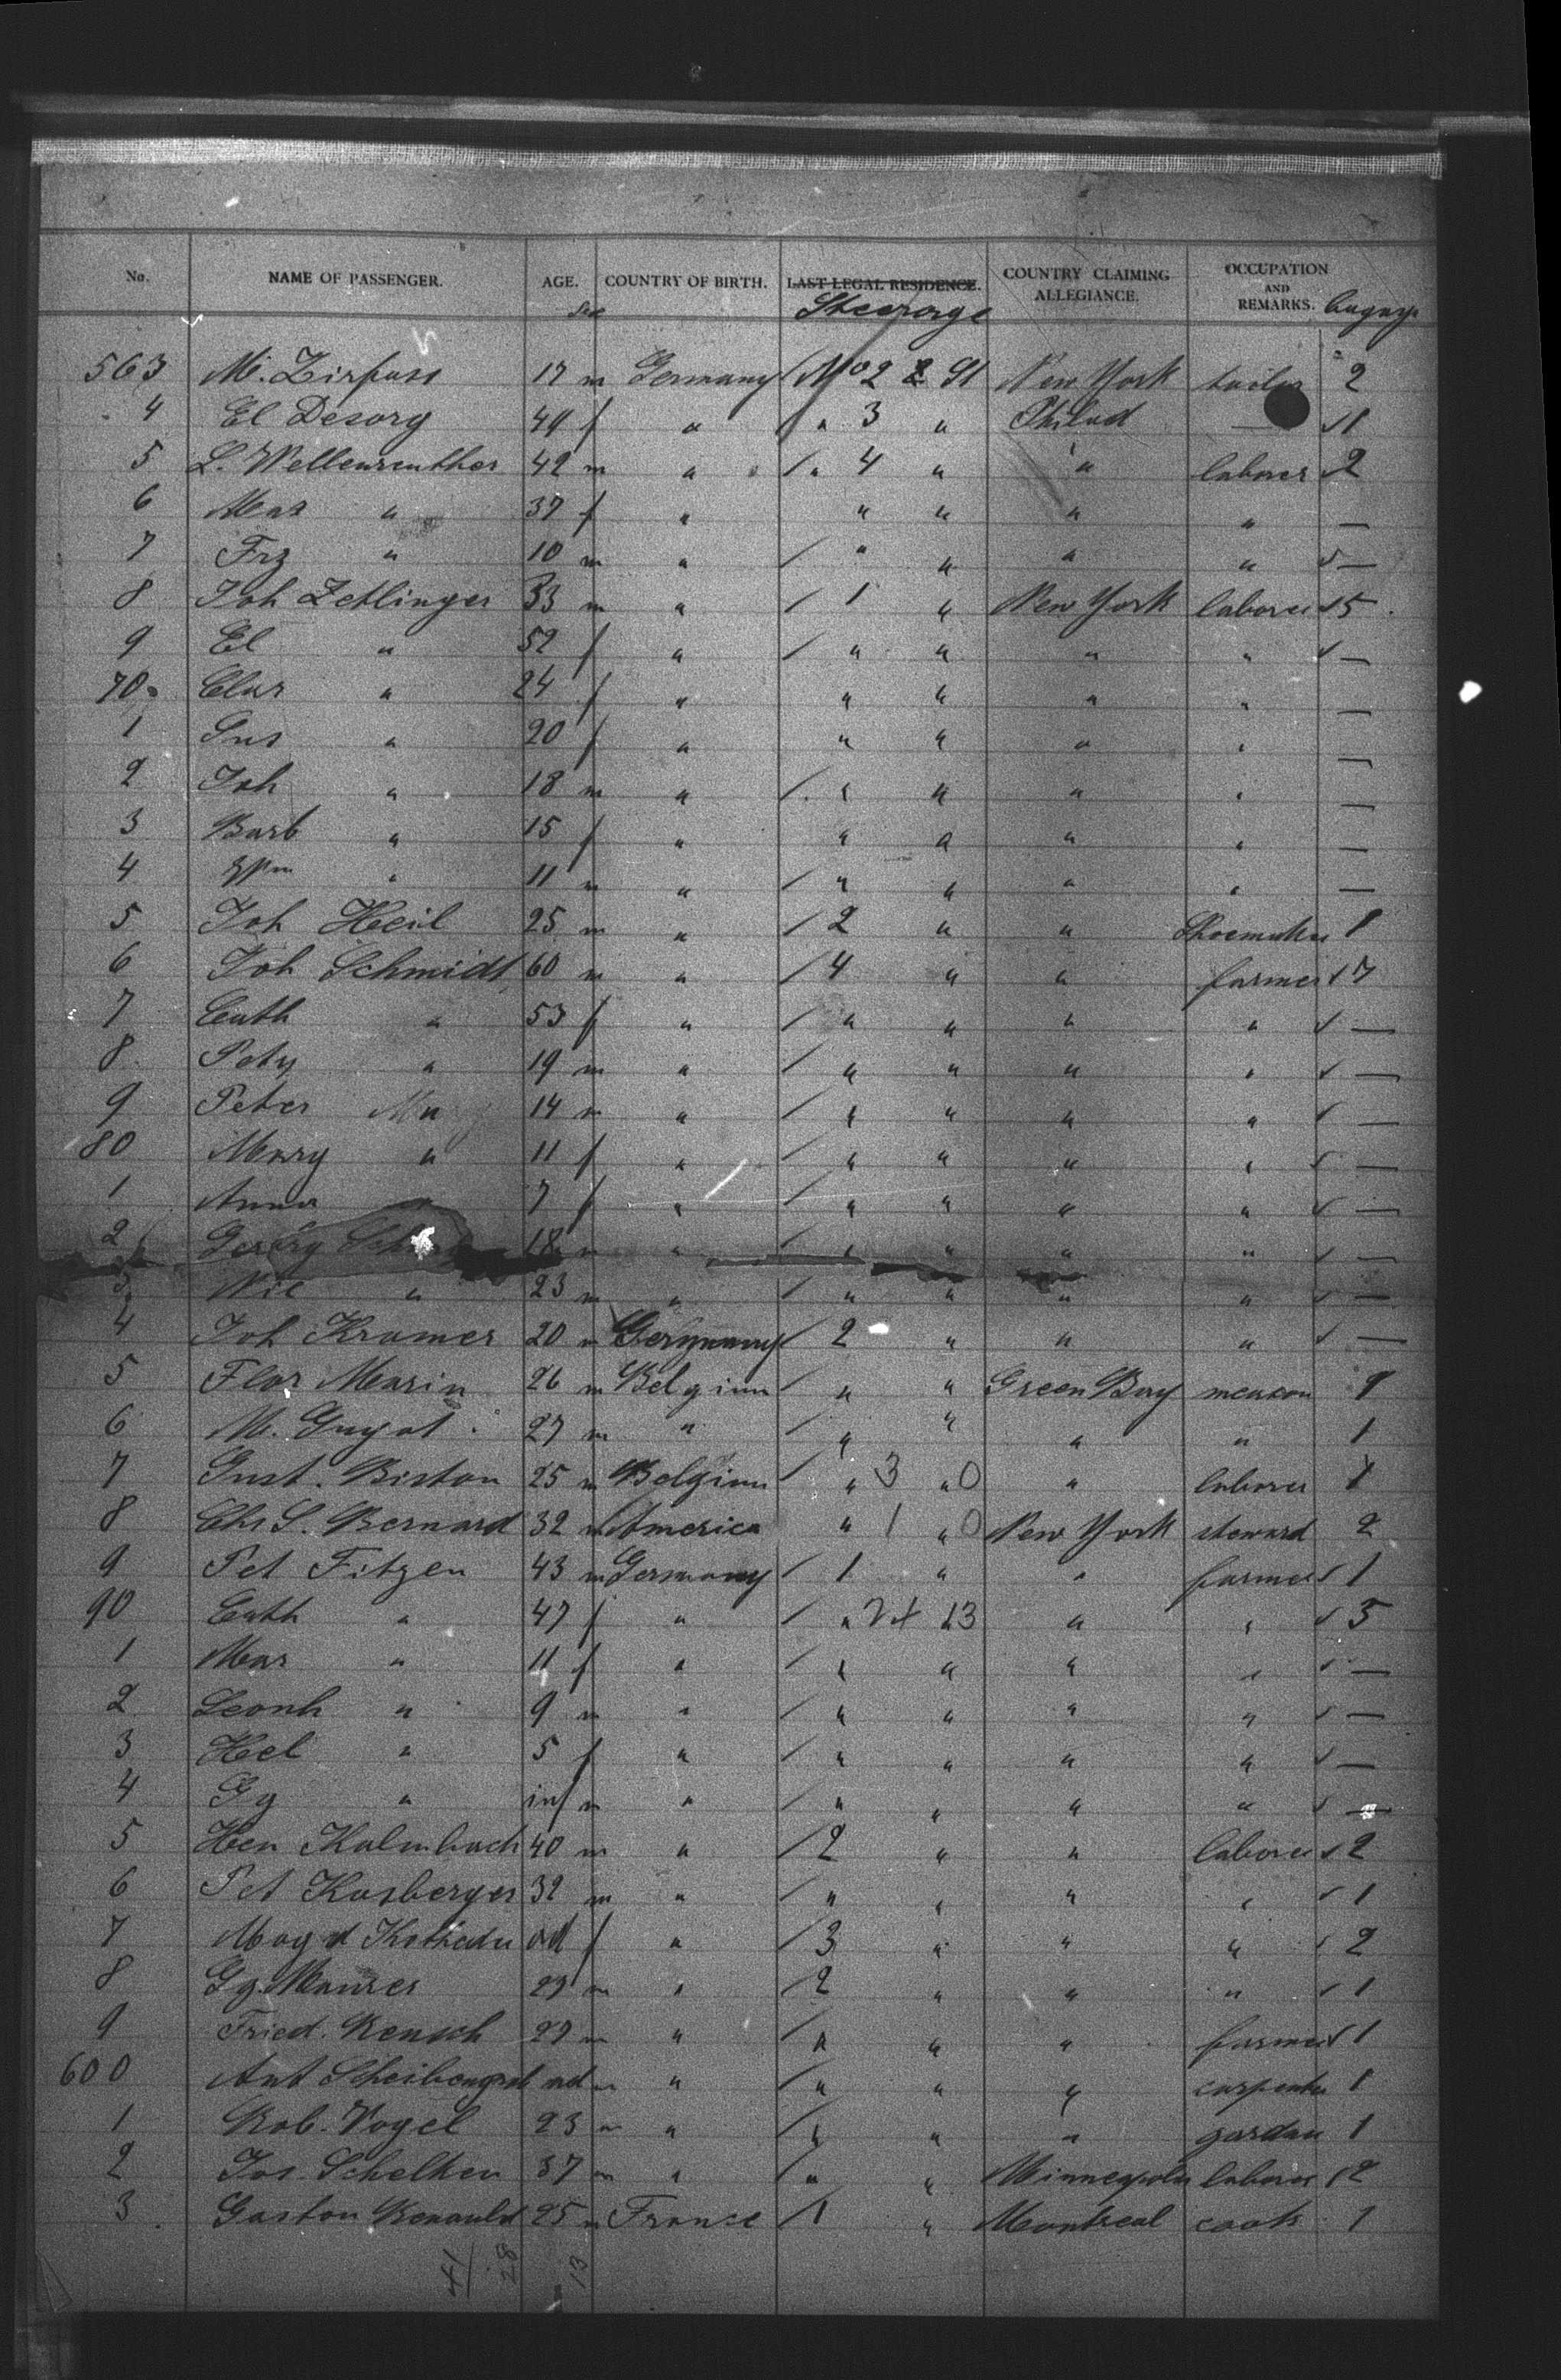 No. NAME OF PASSENGER. AGE. COUNTRY OF BIRTH. LAST LEGAL RESIDENCE. COUNTRY CLAIMING ALLEGIANCE. OCCUPATION AND REMARKS.
Sex Steerage
563 M. Zirfass 17 m Germany / No 2 St New York tailor 2
4 El Desorg f " / " 3 " Philad — ✓ 1
5 L. Wellenreuther 42 m " / " 4 " " laborer ✓ 2
6 Mar " 37 f " " " " " —
7 Frz " 10 m " / " " " " ✓ —
8 Joh Zetlinger 33 m " / 1 " New York laborer ✓ 5
9 El " 52 f " / " " " " ✓ —
70 " 24 f " " " " " —
1 " 20 f " " " " " —
2 Joh " 18 m " / " " " " —
3 Barb " 15 f " " " " " —
4 " 11 m " / " " " " —
5 Joh Heil 25 m " / 2 " " Shoemaker 1
6 Joh Schmidt 60 m " / 4 " " farmer ✓ 7
7 Cath " 53 f " / " " " " ✓ —
8 " 19 m " / " " " " ✓ —
9 Peter " 14 m " / " " " " ✓ —
80 Mary " 11 f " / " " " " ✓ —
1 Anna " 7 f " / " " " " ✓ —
2 Georg 18 m " / " " " " ✓ —
3 Nic " 23 m " / " " " " ✓ —
4 Joh Kramer 20 m Germany / 2 " " " ✓ —
5 Flor Marin 26 m Belgium / " " Green Bay meason 1
6 M. Guyot 27 m " / " " " " 1
7 Gust. Biston 25 m Belgium / " 3 " 0 " laborer 1
8 Chr S. Bernard 32 m America " 1 " 0 New York steward 2
9 Pet Fitzen 43 m Germany / 1 " " farmer ✓ 1
90 Cath " 47 f " / " 13 " " ✓ 5
1 Mar " 11 f " / " " " " ✓ —
2 Leonh " 9 m " / " " " " ✓ —
3 Hel " 5 f " / " " " " ✓ —
4 Gg " inf m " / " " " " ✓ —
5 Hen Kalmbach 40 m " / 2 " " laborer ✓ 2
6 Pet Kasberger 32 m " / " " " " ✓ 1
7 Magd ad f " / 3 " " " ✓ 2
8 Gg. Maurer 29 m " / 2 " " " ✓ 1
9 Fried. Rensch 29 m " / " " " farmer ✓ 1
600 Ant ad m " / " " " carpenter 1
1 Rob. Vogel 23 m " / " " " 1
2 Jos. Schelken 37 m " / " " Minneapolis laborer ✓ 2
3 Gaston Renauld 25 m France / 1 " Montreal cook 1
41
28
13